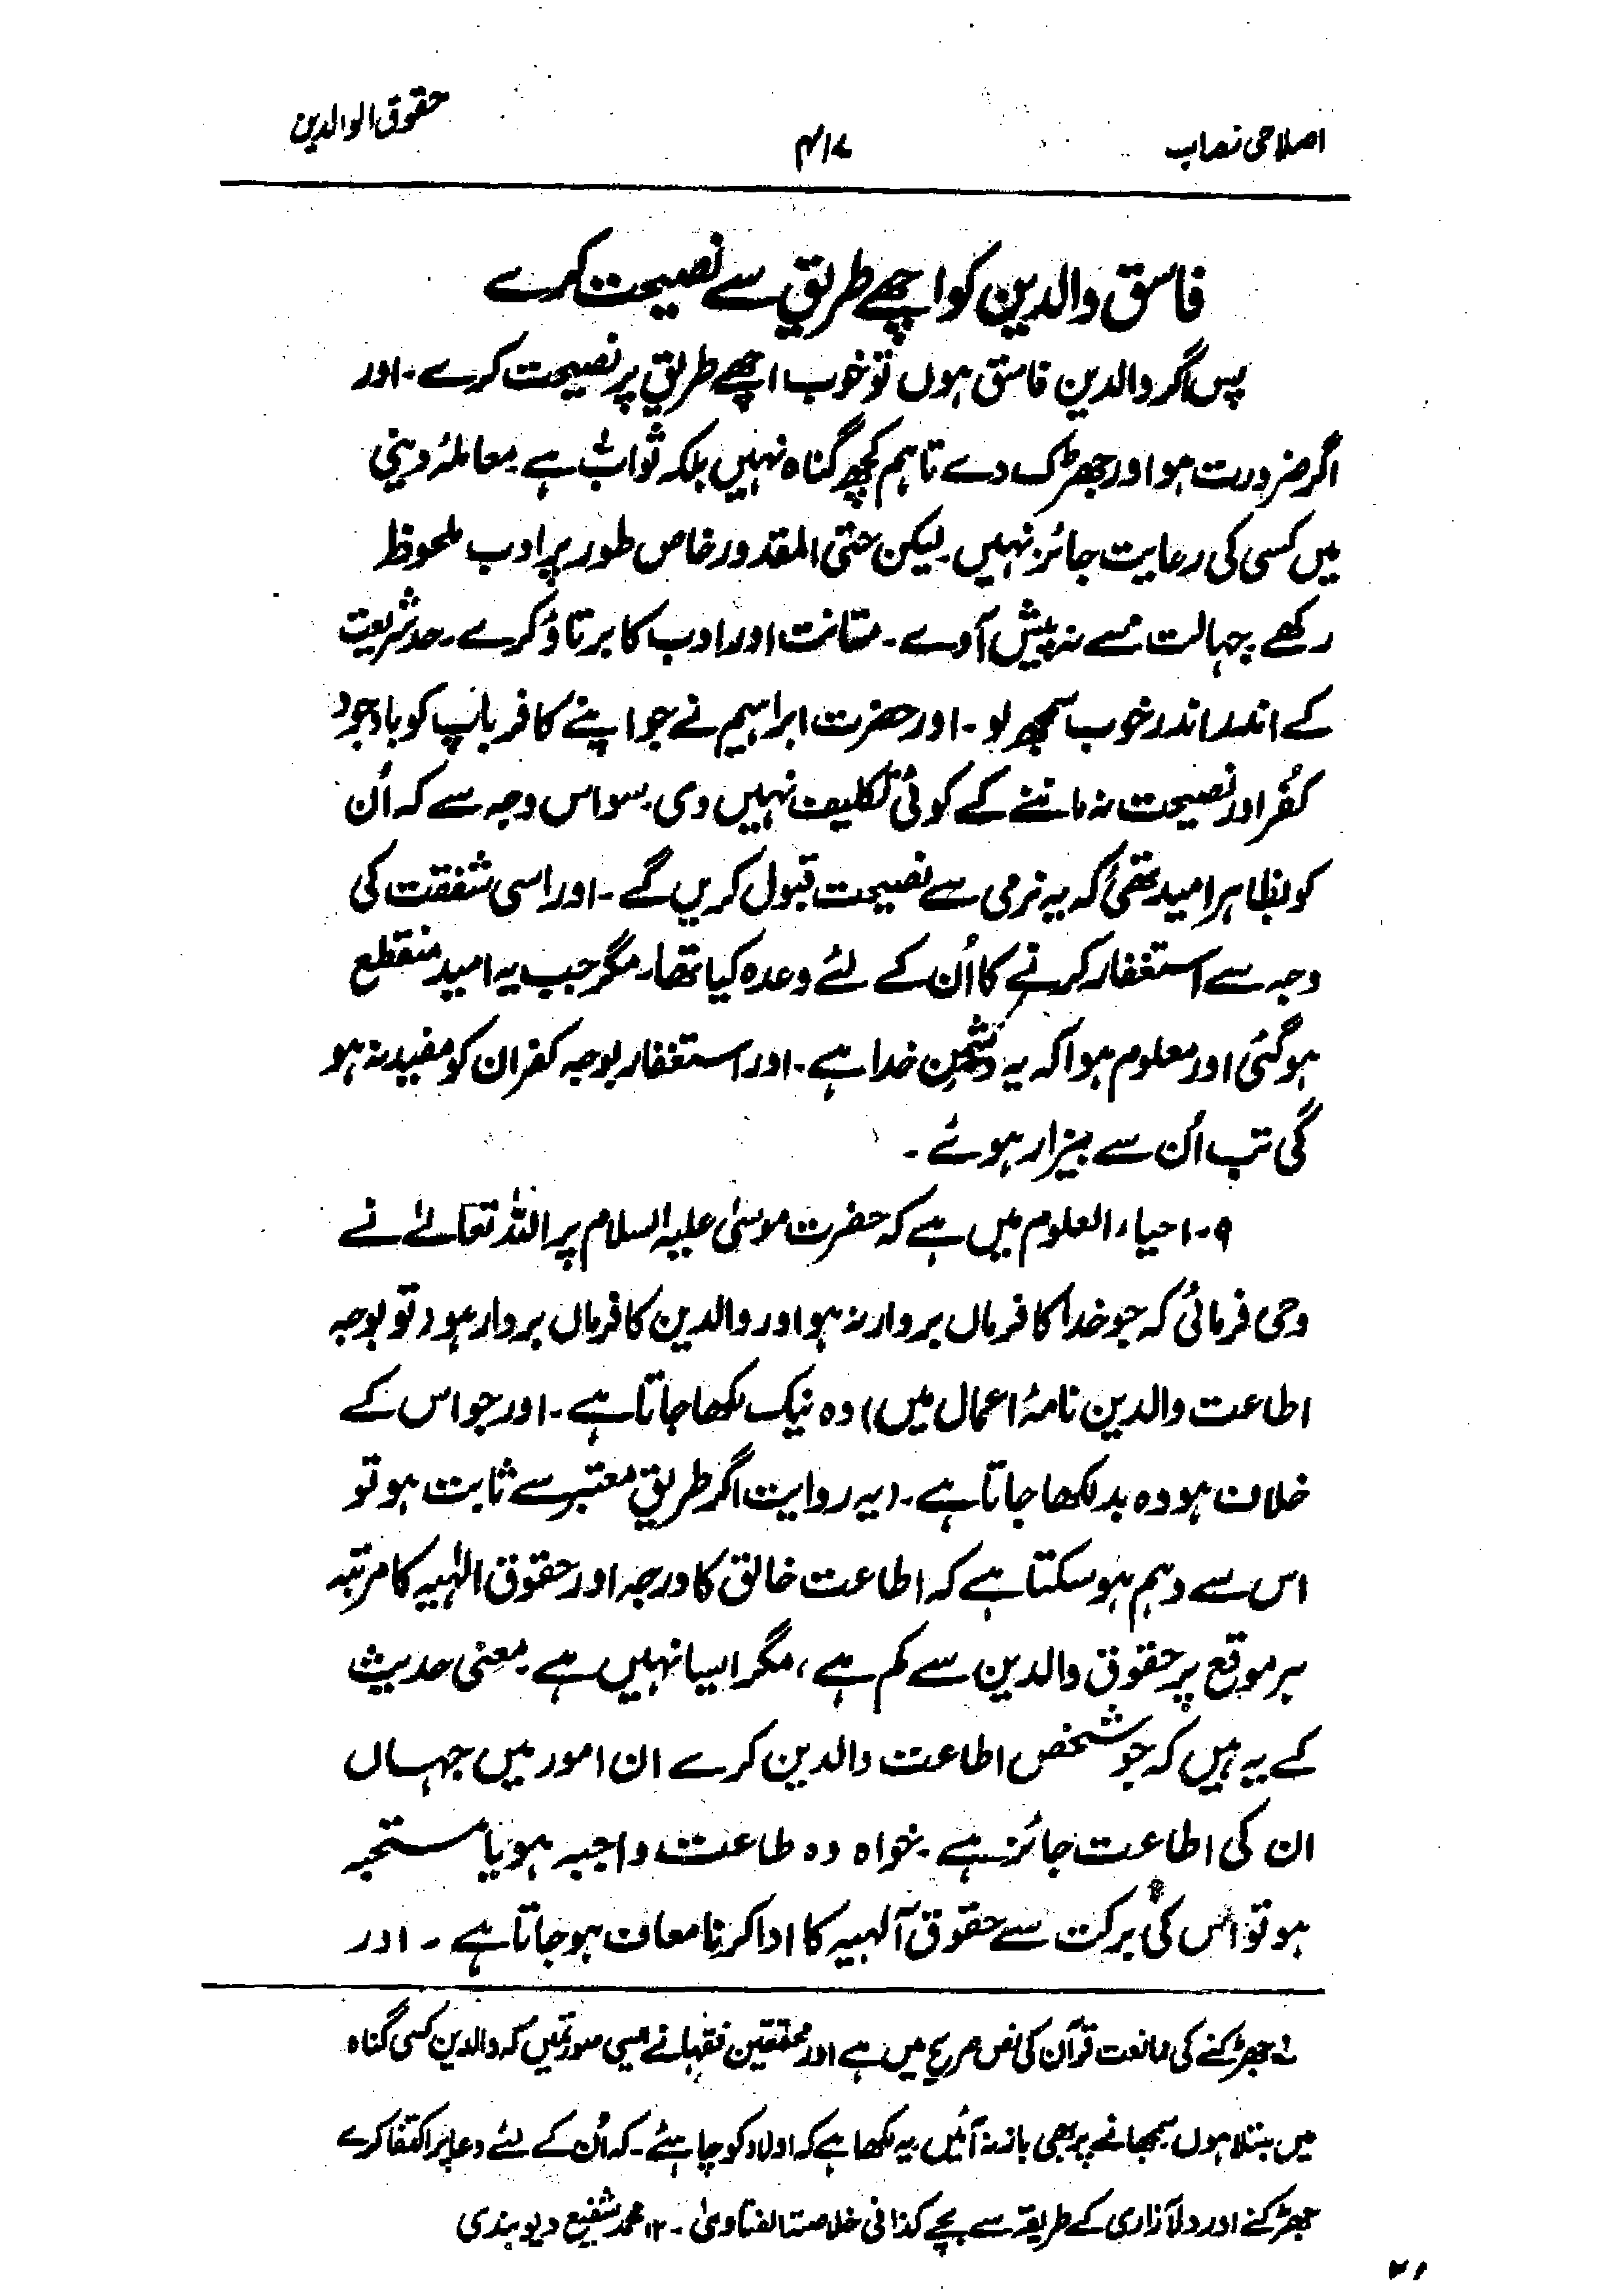 اصلاحی نصاب ۴۱۷ حقوق الوالدین
فاسق والدین کو اچھے طریق سے نصیحت کرے
پس اگر والدین فاسق ہوں تو خوب اچھے طریق پر نصیحت کرے۔ اور
اگر ضرورت ہو اور جھڑک دے تاہم کچھ گناہ نہیں بلکہ ثواب ہے۔ معاملۂ دینی
میں کسی کی رعایت جائز نہیں۔ لیکن حتی المقدور خاص طور پر ادب ملحوظ
رکھے جہالت سے نہ پیش آوے۔ متانت اور ادب کا برتاؤ کرے۔ حد شریعت
کے اندر اندر خوب سمجھ لو۔ اور حضرت ابراہیم نے جو اپنے کافر باپ کو باوجود
کفُر اور نصیحت نہ ماننے کے کوئی تکلیف نہیں دی۔ سو اس وجہ سے کہ اُن
کو بظاہر امید تھی کہ یہ نرمی سے نصیحت قبول کریں گے۔ اور اسی شفقت کی
وجہ سے استغفار کرنے کا اُن کے لئے وعدہ کیا تھا۔ مگر جب یہ امید منقطع
ہو گئی اور معلوم ہوا کہ یہ دشمنِ خدا ہے۔ اور استغفار بوجہ کفر ان کو مفید نہ ہو
گی تب اُن سے بیزار ہوئے۔
۹۔ احیاء العلوم میں ہے کہ حضرت موسیٰ علیہ السلام پر اللہ تعالےٰ نے
وحی فرمائی کہ جو خدا کا فرماں بردار نہ ہو اور والدین کا فرماں بردار ہو (تو بوجہ
اطاعت والدین نامۂ اعمال میں) وہ نیک لکھا جاتا ہے۔ اور جو اس کے
خلاف ہو وہ بد لکھا جاتا ہے۔ (یہ روایت اگر طریق معتبر سے ثابت ہو تو
اس سے وہم ہو سکتا ہے کہ اطاعت خالق کا درجہ اور حقوق الٰہیہ کا مرتبہ
ہر موقع پر حقوق والدین سے کم ہے، مگر ایسا نہیں ہے۔ معنی حدیث
کے یہ ہیں کہ جو شخص اطاعت والدین کرے ان امور میں جہاں
ان کی اطاعت جائز ہے۔ خواہ وہ طاعت واجبہ ہو یا مستحبہ
ہو تو اس کی برکت سے حقوق آلہیہ کا ادا کرنا معاف ہو جاتا ہے۔ اور
جھڑکنے کی ممانعت قرآن کی نص صریح میں ہے اور محققین فقہا نے ایسی صورتمیں کہ والدین کسی گناہ
میں مبتلا ہوں سمجھانے پر بھی باز نہ آئیں یہ لکھا ہے کہ اولاد کو چاہئے۔ کہ اُن کے لئے دعا پر اکتفا کرے
جھڑکنے اور دلآزاری کے طریقہ سے بچے کذا فی خلاصۃ الفتاویٰ۔ ۱۲ محمد شفیع دیوبندی